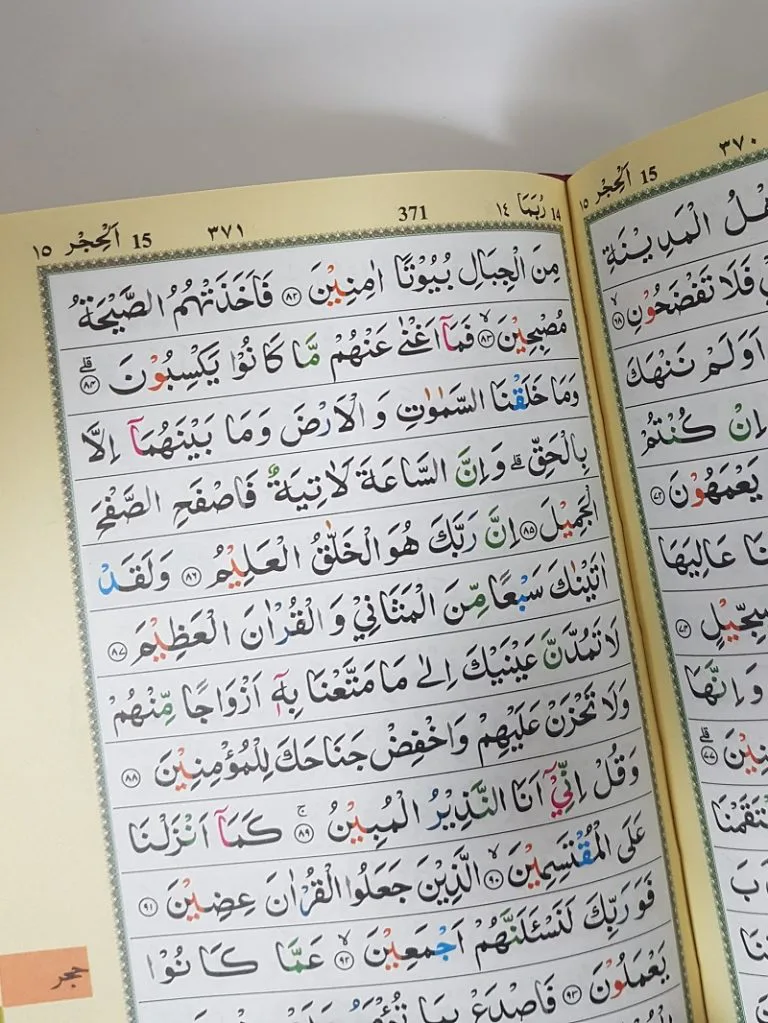 اَلْحِجْر ١٥ 15 ٣٧١ 371 رُبَمَا ١٤ 14
مِنَ الْجِبَالِ بُيُوْتًا اٰمِنِيْنَ ﴿٨٢﴾ فَاَخَذَتْهُمُ الصَّيْحَةُ
مُصْبِحِيْنَ ۙ﴿٨٣﴾ فَمَآ اَغْنٰى عَنْهُمْ مَّا كَانُوْا يَكْسِبُوْنَ ۗ﴿٨٤﴾
وَمَا خَلَقْنَا السَّمٰوٰتِ وَ الْاَرْضَ وَمَا بَيْنَهُمَآ اِلَّا
بِالْحَقِّ ۗ وَاِنَّ السَّاعَةَ لَاٰتِيَةٌ فَاصْفَحِ الصَّفْحَ
الْجَمِيْلَ ﴿٨٥﴾ اِنَّ رَبَّكَ هُوَ الْخَلّٰقُ الْعَلِيْمُ ﴿٨٦﴾ وَلَقَدْ
اٰتَيْنٰكَ سَبْعًا مِّنَ الْمَثَانِيْ وَ الْقُرْاٰنَ الْعَظِيْمَ ﴿٨٧﴾
لَا تَمُدَّنَّ عَيْنَيْكَ اِلٰى مَا مَتَّعْنَا بِهٖٓ اَزْوَاجًا مِّنْهُمْ
وَلَا تَحْزَنْ عَلَيْهِمْ وَاخْفِضْ جَنَاحَكَ لِلْمُؤْمِنِيْنَ ﴿٨٨﴾
وَقُلْ اِنِّيْٓ اَنَا النَّذِيْرُ الْمُبِيْنُ ۚ﴿٨٩﴾ كَمَآ اَنْزَلْنَا
عَلَى الْمُقْتَسِمِيْنَ ۙ﴿٩٠﴾ الَّذِيْنَ جَعَلُوا الْقُرْاٰنَ عِضِيْنَ ﴿٩١﴾
فَوَرَبِّكَ لَنَسْـَٔلَنَّهُمْ اَجْمَعِيْنَ ۙ﴿٩٢﴾ عَمَّا كَانُوْا
يَعْمَلُوْنَ ﴿٩٣﴾ فَاصْدَعْ بِمَا تُؤْمَرُ
حجر
٣٧٠
15 اَلْحِجْر ١٥
الْمَدِيْنَةِ
فَلَا تَفْضَحُوْنِ ۙ﴿٦٨﴾
اَوَلَمْ نَنْهَكَ
اِنْ كُنْتُمْ
يَعْمَهُوْنَ ﴿٧٢﴾
عَالِيَهَا
سِجِّيْلٍ ﴿٧٤﴾
وَاِنَّهَا